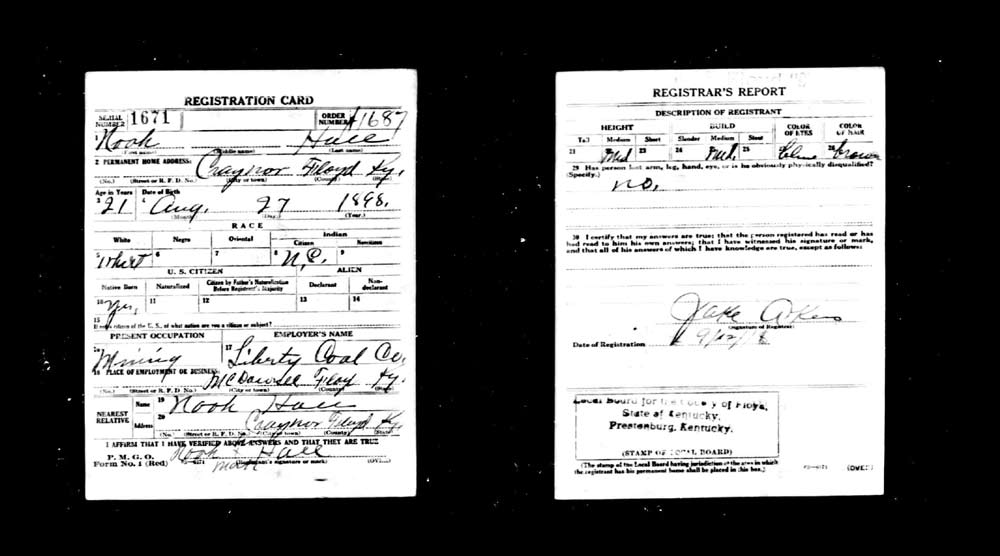 REGISTRATION CARD
SERIAL NUMBER 1671 ORDER NUMBER A1687
1 Nook Hall
(First name) (Middle name) (Last name)
2 PERMANENT HOME ADDRESS:
Craynor Floyd Ky.
(No.) (Street or R. F. D. No.) (City or town) (County) (State)
Age in Years Date of Birth
3 21 4 Aug. 27 1898.
(Month) (Day) (Year)
RACE
White Negro Oriental Indian
Citizen Noncitizen
5 whit 6 7 8 9
U. S. CITIZEN ALIEN
Native Born Naturalized Citizen by Father's Naturalization Before Registrant's Majority Declarant Non-declarant
10 yes, 11 12 13 14
15
If not a citizen of the U. S., of what nation are you a citizen or subject?
PRESENT OCCUPATION EMPLOYER'S NAME
16 Mining 17 Liberty Coal Co.
18 PLACE OF EMPLOYMENT OR BUSINESS:
McDowell Floyd Ky.
(No.) (Street or R. F. D. No.) (City or town) (County) (State)
NEAREST RELATIVE
Name 19 Nook Hall
Address 20 Craynor Floyd Ky.
(No.) (Street or R. F. D. No.) (City or town) (County) (State)
I AFFIRM THAT I HAVE VERIFIED ABOVE ANSWERS AND THAT THEY ARE TRUE
P. M. G. O.
Form No. 1 (Red) Nook Hall
mark
(Registrant's signature or mark) (OVER)
REGISTRAR'S REPORT
DESCRIPTION OF REGISTRANT
HEIGHT BUILD COLOR OF EYES COLOR OF HAIR
Tall Medium Short Slender Medium Stout
21 22 Med 23 24 Med. 25 blue 28 brown
29 Has person lost arm, leg, hand, eye, or is he obviously physically disqualified?
(Specify.)
no.
30 I certify that my answers are true; that the person registered has read or has
had read to him his own answers; that I have witnessed his signature or mark,
and that all of his answers of which I have knowledge are true, except as follows:
Jake Akers
(Signature of Registrar)
Date of Registration 9/12/18
Local Board for the County of Floyd,
State of Kentucky,
Prestonburg, Kentucky.
(STAMP OF LOCAL BOARD)
(The stamp of the Local Board having jurisdiction of the area in which
the registrant has his permanent home shall be placed in this box.)
(OVER)